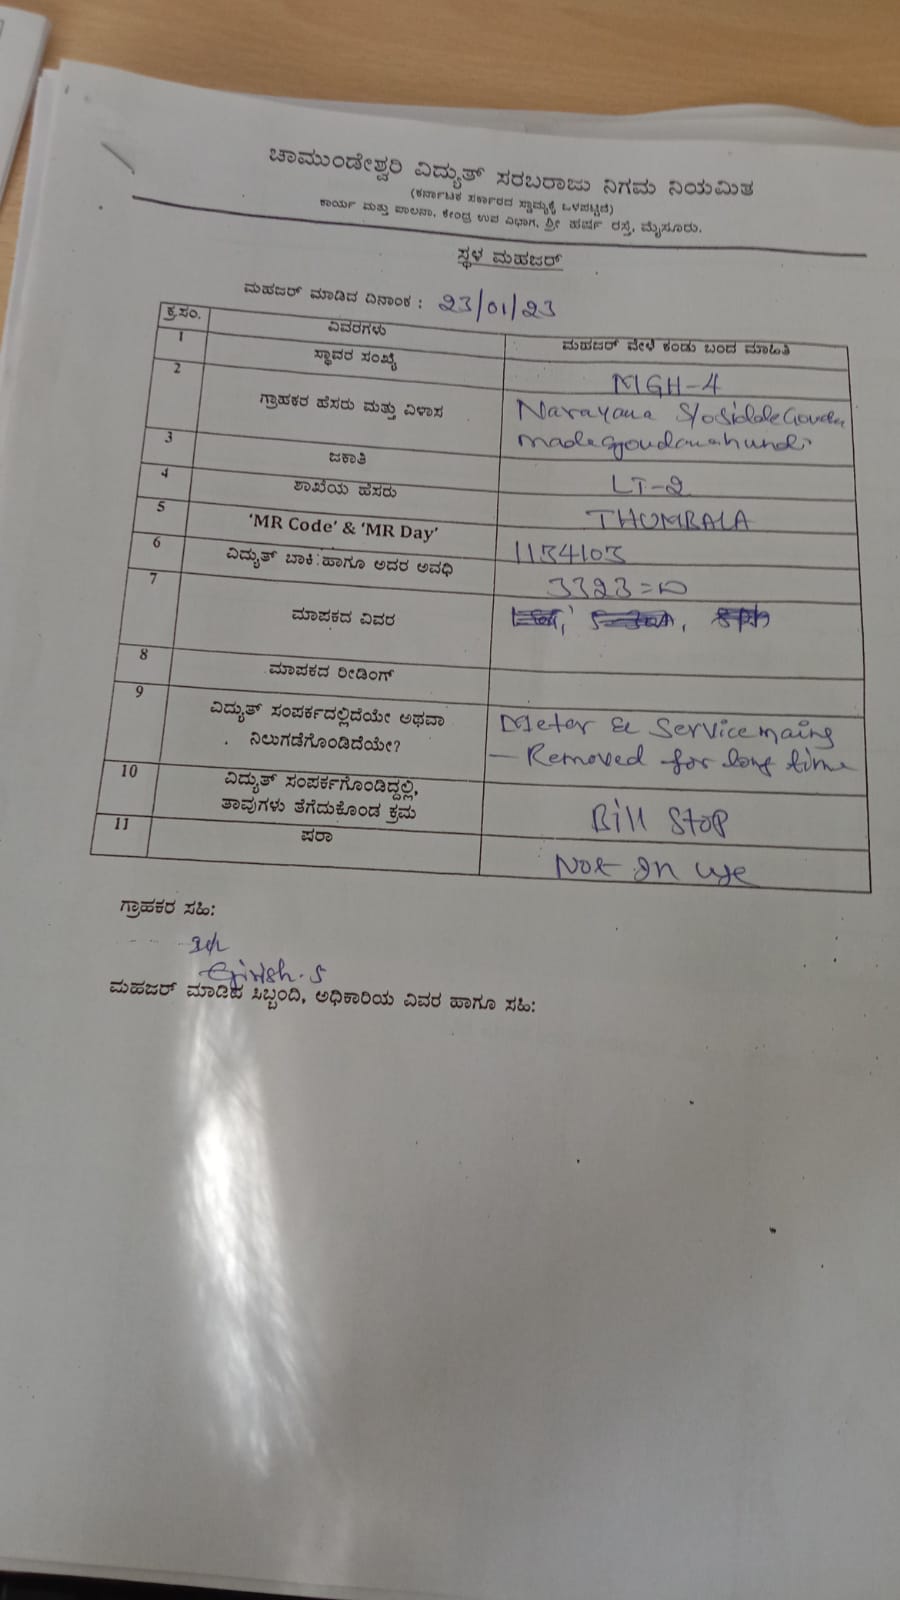 ಚಾಮುಂಡೇಶ್ವರಿ ವಿದ್ಯುತ್ ಸರಬರಾಜು ನಿಗಮ ನಿಯಮಿತ
(ಕರ್ನಾಟಕ ಸರ್ಕಾರದ ಸ್ವಾಮ್ಯಕ್ಕೆ ಒಳಪಟ್ಟಿದೆ)
ಕಾರ್ಯ ಮತ್ತು ಪಾಲನಾ, ಕೇಂದ್ರ ಉಪ ವಿಭಾಗ, ಶ್ರೀ ಹರ್ಷ ರಸ್ತೆ, ಮೈಸೂರು.
ಸ್ಥಳ ಮಹಜರ್
ಮಹಜರ್ ಮಾಡಿದ ದಿನಾಂಕ : 23/01/23
ಕ್ರ.ಸಂ. ವಿವರಗಳು ಮಹಜರ್ ವೇಳೆ ಕಂಡು ಬಂದ ಮಾಹಿತಿ
1 ಸ್ಥಾವರ ಸಂಖ್ಯೆ MGH-4
2 ಗ್ರಾಹಕರ ಹೆಸರು ಮತ್ತು ವಿಳಾಸ Narayana S/o SiddeGowda
madegoudanahundi
3 ಜಕಾತಿ LT-2
4 ಶಾಖೆಯ ಹೆಸರು THUMBALA
5 'MR Code' & 'MR Day' 1134103
6 ವಿದ್ಯುತ್ ಬಾಕಿ ಹಾಗೂ ಅದರ ಅವಧಿ 3323=00
7 ಮಾಪಕದ ವಿವರ
8 ಮಾಪಕದ ರೀಡಿಂಗ್
9 ವಿದ್ಯುತ್ ಸಂಪರ್ಕದಲ್ಲಿದೆಯೇ ಅಥವಾ Meter & Service mains
ನಿಲುಗಡೆಗೊಂಡಿದೆಯೇ? - Removed for long time
10 ವಿದ್ಯುತ್ ಸಂಪರ್ಕಗೊಂಡಿದ್ದಲ್ಲಿ,
ತಾವುಗಳು ತೆಗೆದುಕೊಂಡ ಕ್ರಮ Bill Stop
11 ಷರಾ Not In use
ಗ್ರಾಹಕರ ಸಹಿ:
Girish.S
ಮಹಜರ್ ಮಾಡಿದ ಸಿಬ್ಬಂದಿ, ಅಧಿಕಾರಿಯ ವಿವರ ಹಾಗೂ ಸಹಿ: